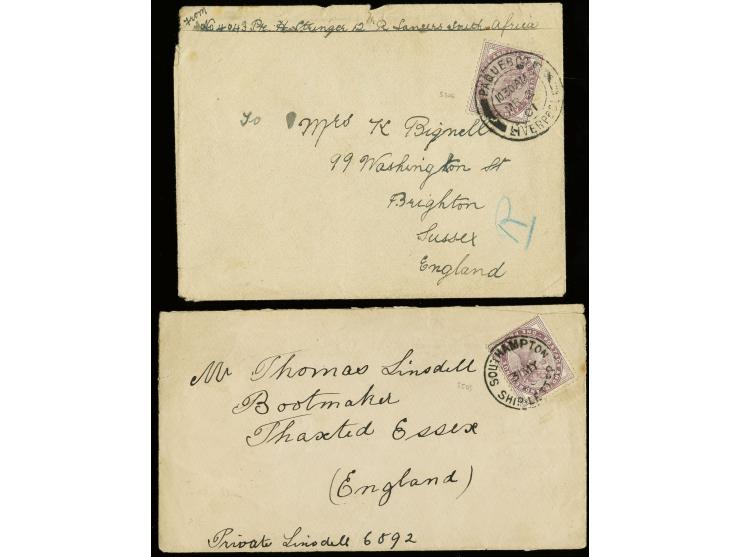 From
No 4043 Pte H Stringer 12th R Lancers South Africa
PAQUEBOT
10.30AM
01
LIVERPOOL
5506
To Mrs K Bignell
99 Washington St
Brighton
Sussex
England
R
SOUTHAMPTON
31 MY
SHIP LETTER
5505
Mr Thomas Linsdell
Bootmaker
Thaxted Essex
(England)
Private Linsdell 6892